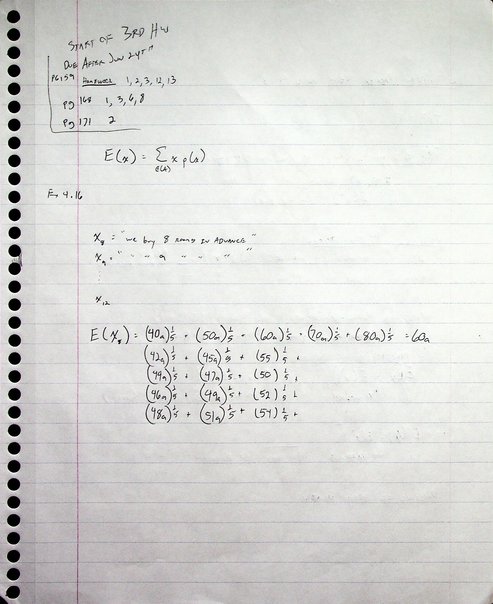 START OF 3RD HW
DUE AFTER JUN 24TH
PG 159 HOMEWORK 1, 2, 3, 12, 13
pg 168 1, 3, 6, 8
pg 171 2
E(x) = ∑ x p(x)
4.16
x₈ = "we buy 8 rooms IN ADVANCE"
x₉ = " " " 9 " " " "
⋮
x₁₂
E(x₈) = (40a)1/5 + (50a)1/5 + (60a)1/5 + (70a)1/5 + (80a)1/5 = 60a
(42a)1/5 + (45a)1/5 + (55)1/5 +
(44a)1/5 + (47a)1/5 + (50)1/5 +
(46a)1/5 + (49a)1/5 + (52)1/5 +
(48a)1/5 + (51a)1/5 + (54)1/5 +